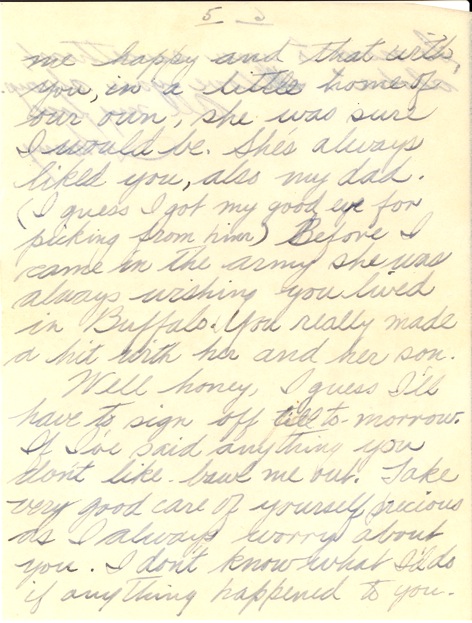 5
me happy and that with
you, in a little home of
our own, she was sure
I would be. She's always
liked you, also my dad.
(I guess I got my good eye for
picking from him) Before I
came in the army she was
always wishing you lived
in Buffalo. You really made
a hit with her and her son.
Well honey, I guess I'll
have to sign off till to-morrow.
If I've said anything you
don't like - bawl me out. Take
very good care of yourself precious
as I always worry about
you. I don't know what I'd do
if anything happened to you.